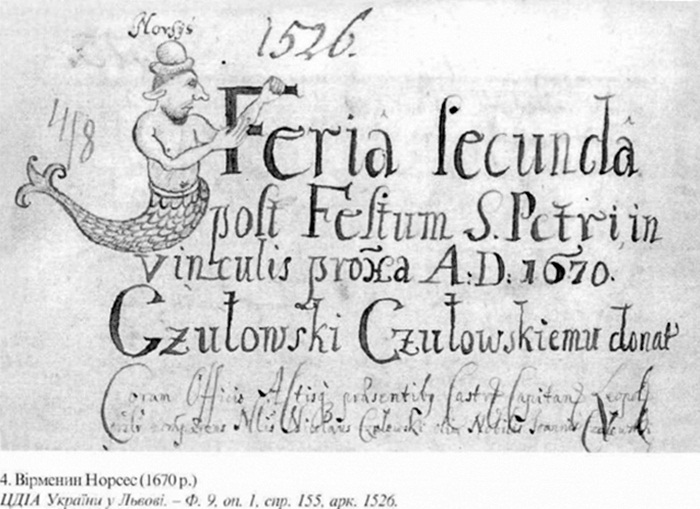 Norsýs
1526.
4/8
Feria ſecunda
poſt Feſtum S. Petri in
vinculis proxa A: D: 1670.
Czułowski Czułowskiemu donat
Coram Officio Actisq præsentibq Castr Capitan Leopol
Nobilis
4. Вірменин Норсес (1670 р.)
ЦДІА України у Львові. – Ф. 9, оп. 1, спр. 155, арк. 1526.